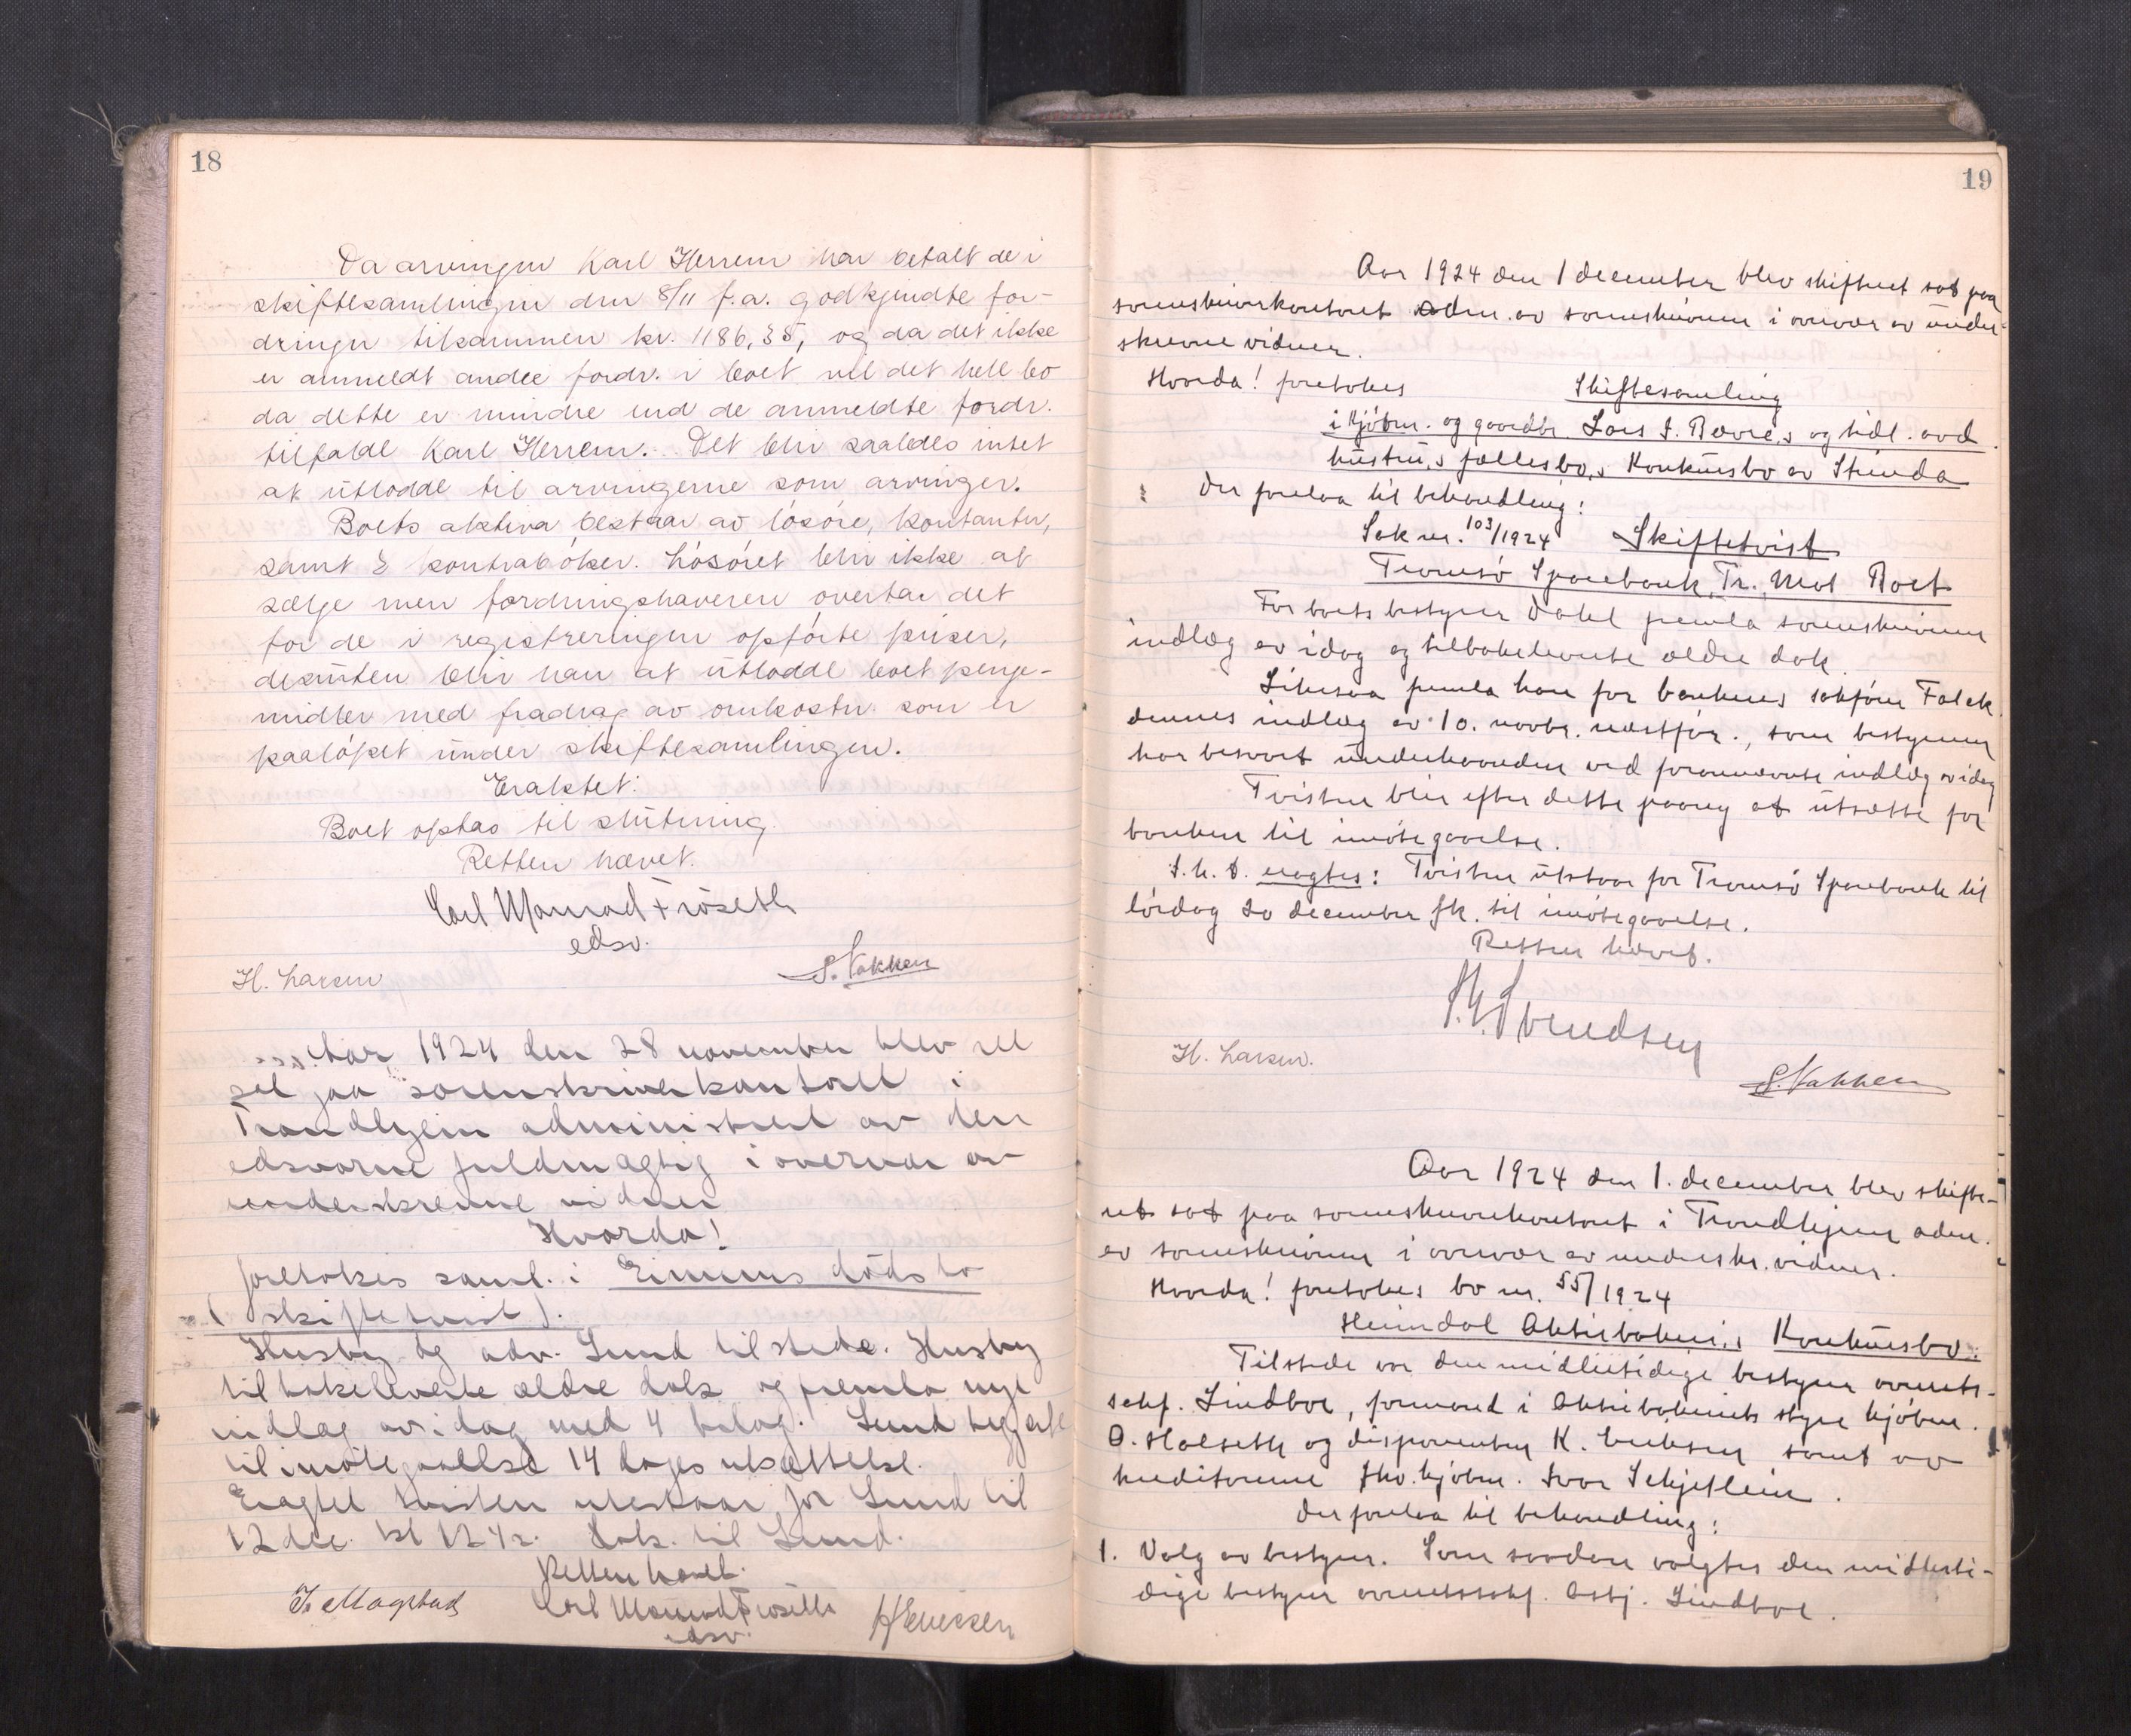 18
Da arvingen Karl Herrem har betalt de i
skiftesamlingen den 8/11 f.a. godkjendte for-
dringer tilsammen kr. 1186,35, og da det ikke
er anmeldt andre fordr. i boet vil det hele bo
da dette er mindre end de anmeldte fordr.
tilfalde Karl Herrem. Det blir saaledes intet
at utlodde til arvingerne som arvinger.
Boets aktiva bestaar av lösöre, kontanter,
samt 2 kontrabøker. Lösöret blir ikke at
sælge men fordringshaveren overtar det
for de i registreringen opförte priser,
desuten blir han at utlodde boet penge-
midler med fradrag av omkostn. som er
paalöpet under skiftesamlingen.
Eraktet:
Boet optas til slutning.
Retten hævet.
Carl Monrad Fröseth
edsv.
H. Larsen S. Nakken
Aar 1924 den 28 november blev ret
sat paa sorenskriverkontoret i
Trondhjem administrert av den
edsvorne fuldmægtig i overvær av
underskrevne vidner
Hvorda!
foretokes saml. i dödsbo
(skiftetvist).
Husby og adv. Lund tilstede. Husby
tilbakeleverte ældre dok og fremla nyt
indlæg av idag med 4 bilag. Lund begjærte
til imötegaaelse 14 dages utsættelse.
Eragtet tvisten utestaar for Lund til
12 dec. kl 12 ½. Dok. til Lund.
Retten hævet.
Carl Monrad Fröseth
edsv.
19
Aar 1924 den 1 december blev skifteret sat paa
sorenskriverkontoret adm. av sorenskriveren i overvær av under-
skrevne vidner.
Hvorda! foretokes Skiftesamling
i kjöbm. og gaardbr. Lars J. Bævre,s og tidl. avd.
hustru,s fællesbo,s Konkursbo av Strinda
Der forelaa til behandling:
Sak nr. 103/1924 Skiftetvist
Tromsö Sparebank, Tr. mot Boet
For boets bestyrer Dahl fremla sorenskriveren
indlæg av idag og tilbakeleverte ældre dok.
Likesaa fremla han for bankens sakförer Falck
dennes indlæg av 10. novbr. næstfor., som bestyreren
har besvart underhaanden ved forannævnte indlæg av idag
Tvisten blir efter dette paany at utsætte for
banken til imötegaaelse.
S.k. D. eragtes: Tvisten utstaar for Tromsö Sparebank til
lördag 20 december fk. til imötegaaelse.
Retten hævet.
Svendsen
H. Larsen. S. Nakken
Aar 1924 den 1. december blev skifte-
ret sat paa sorenskriverkontoret i Trondhjem adm.
av sorenskriveren i overvær av underskr. vidner.
Hvorda! foretokes bo nr. 55/1924
Heimdal Aktiebakeri,s Konkursbo:
Tilstede var den midlertidige bestyrer overrets-
sakf. Lindboe, formand i Aktiebakeriets styre kjöbm.
O. Halseth og disponenten K. Eriksen samt av
kreditorerne kjöbm. Ivar Schjetlein.
Der forelaa til behandling:
1. Valg av bestyrer. Som saadan valgtes den midlerti-
dige bestyrer overretssakf. Asbj. Lindboe.